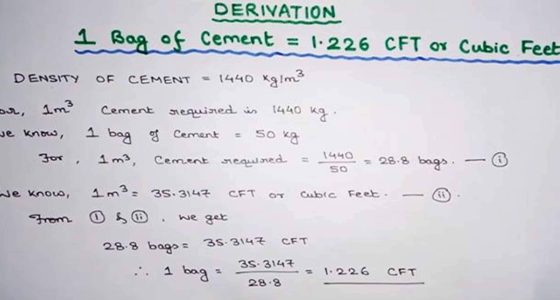 DERIVATION
1 Bag of Cement = 1.226 CFT or Cubic Feet
DENSITY OF CEMENT = 1440 Kg/m³
or, 1m³ Cement required is 1440 kg.
we know, 1 bag of Cement = 50 kg
For, 1m³, Cement required = 1440/50 = 28.8 bags. — (i)
we know, 1m³ = 35.3147 CFT or Cubic Feet. — (ii).
From (i) & (ii), we get
28.8 bags = 35.3147 CFT
∴ 1 bag = 35.3147/28.8 = 1.226 CFT